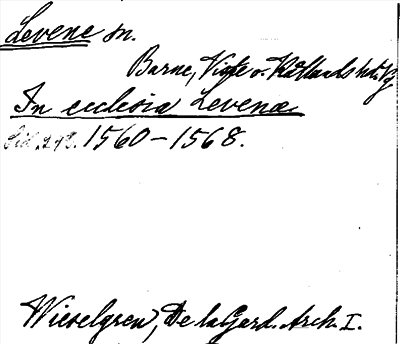 Levene sn.
Barne, Viste o. Kållands hd
In ecclesia Levenæ
1560-1568.
Wieselgren, De la Gard. Arch. I.